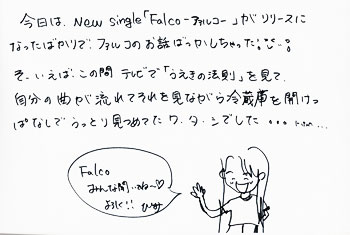 今日は、New single「Falco-ファルコー」がリリースに
なったばかりで、ファルコのお話ばっかしちゃった!!
そーいえば、この間 テレビで「うえきの法則」を見て、
自分の曲が流れてそれを見ながら冷蔵庫を開けっ
ぱなしでうっとり見つめてたワ・タ・シでした...
Falco
みんな聞いてね〜♡
よろしく!! ひとみ